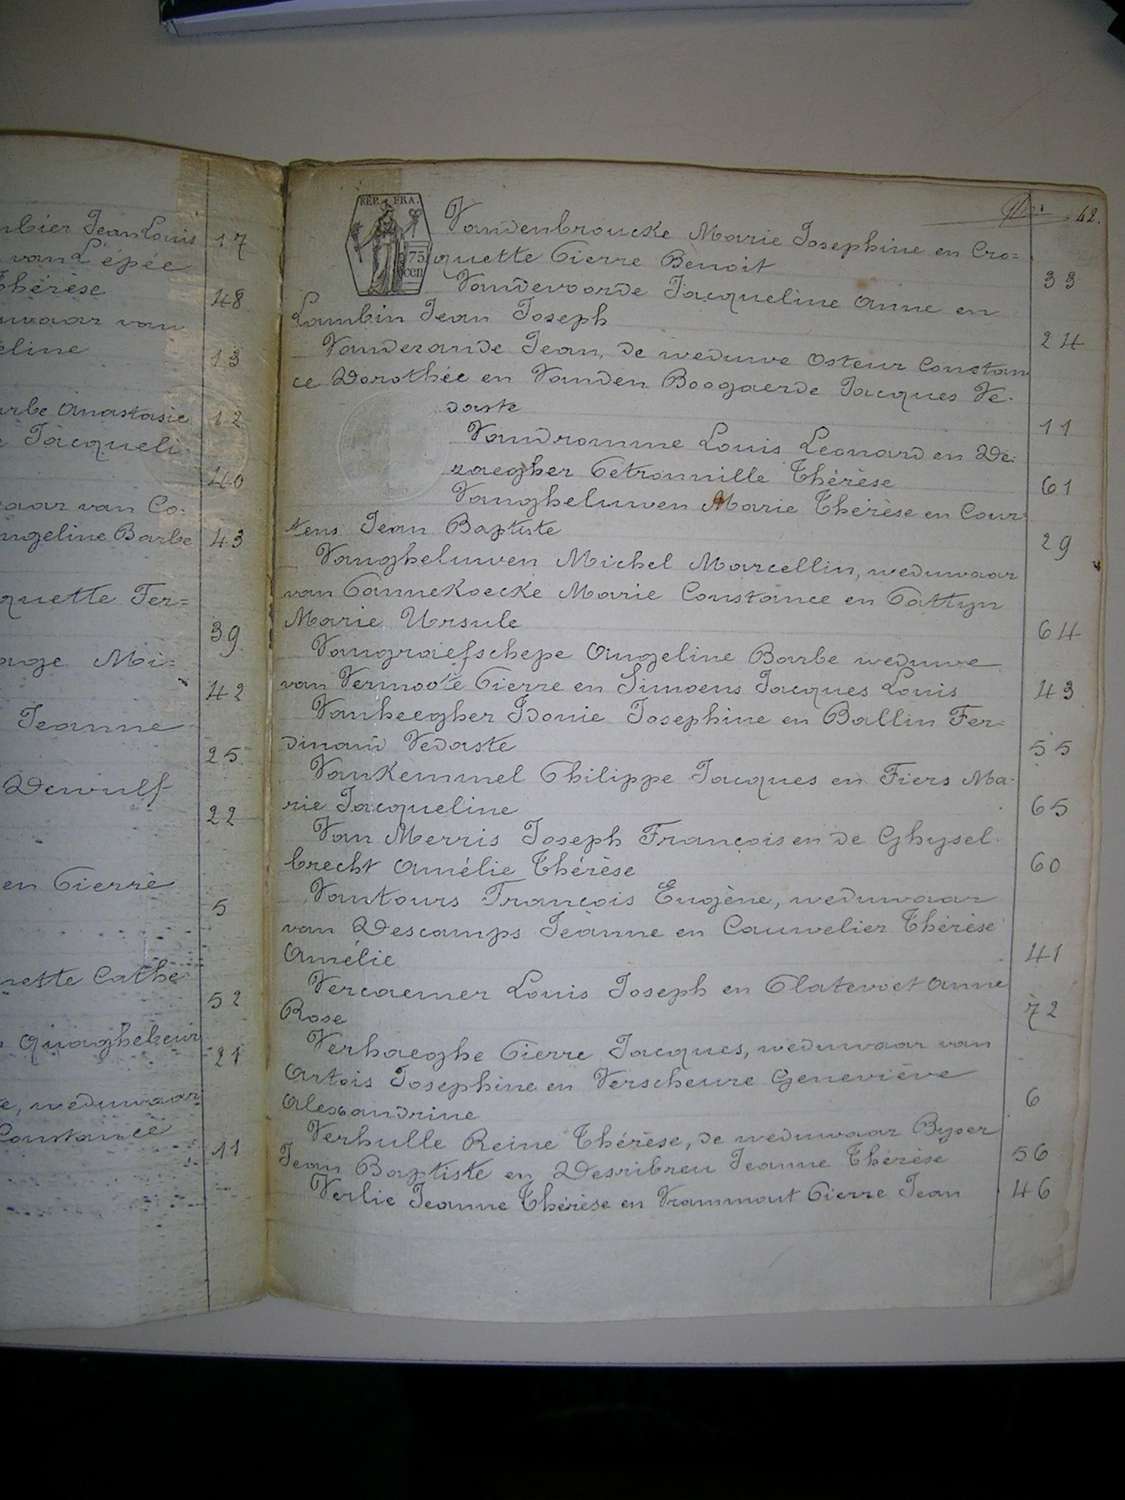 nbier Jean Louis 17
van L'épée
Thérèse 48
waar van
eline 13
arbe Anastasie 12
Jacqueli-
40
aar van Co-
ngeline Barbe 43
quette Fer=
39
age Mi=
42
Jeanne
25
Dewulf
22
en Pierre
5
nette Cathe
52
Quaghebeur
21
e, weduwaar
Constance
11
62.
REP. FRA.
75
CEN
Vandenbroucke Marie Josephine en Cro=
quette Pierre Benoit 33
Vandevoorde Jacqueline Anne en
Lambin Jean Joseph 24
Vanderande Jean, de weduwe Osteur Constan
ce Dorothée en Vanden Boogaerde Jacques Ve-
daste 11
Vandromme Louis Leonard en De-
zaegher Petronnille Thérèse 61
Vangheluwen Marie Thérèse en Cour-
tens Jean Baptiste 29
Vangheluwen Michel Marcellin, weduwaar
van Pannekoecke Marie Constance en Pattyn
Marie Ursule 64
Vangraefschepe Angeline Barbe weduwe
van Vermoote Pierre en Simoens Jacques Louis 43
Vanheegher Idonie Josephine en Ballin Fer-
dinand Vedaste 55
Vankemmel Philippe Jacques en Fiers Ma-
rie Jacqueline 65
Van Merris Joseph François en de Ghysel-
brecht Amélie Thérèse 60
Vantours François Eugène, weduwaar
van Descamps Jeanne en Cauwelier Thérèse
Amélie 41
Vercaemer Louis Joseph en Platevoet Anne
Rose 72
Verhaeghe Pierre Jacques, weduwaar van
Artois Josephine en Verscheure Geneviève
Alexandrine 6
Verhulle Reine Thérèse, de weduwaar Byser
Jean Baptiste en Desribreu Jeanne Thérèse 56
Verlie Jeanne Thérèse en Vrammout Pierre Jean 46